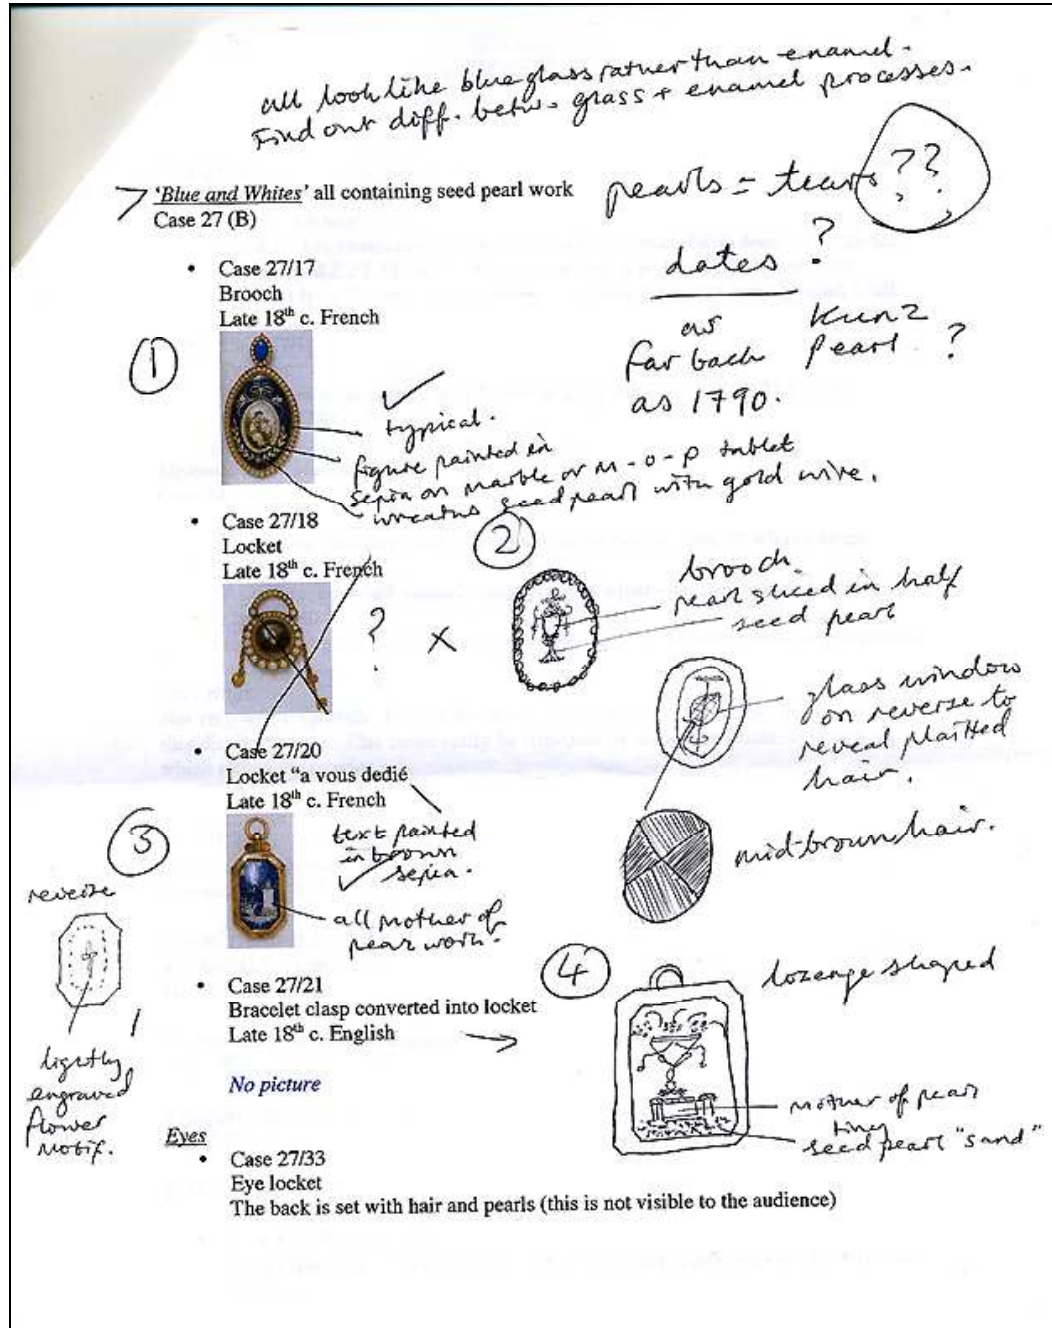 all look like blue glass rather than enamel.
Find out diff. betw. glass + enamel processes.
'Blue and Whites' all containing seed pearl work
Case 27 (B)
pearls = tears ??
dates ?
as
far back
as 1790.
Kunz
Pearl ?
• Case 27/17
Brooch
Late 18th c. French
1
typical.
figure painted in
sepia on marble or m-o-p tablet
wreaths seed pearl with gold wire.
• Case 27/18
Locket
Late 18th c. French
?
x
2
brooch
pearl sliced in half
seed pearl
glass window
on reverse to
reveal plaited
hair.
mid-brown hair.
• Case 27/20
Locket "a vous dedié
Late 18th c. French
3
text painted
in brown
sepia.
all mother of
pearl work.
reverse
lightly
engraved
flower
motif.
• Case 27/21
Bracelet clasp converted into locket
Late 18th c. English
No picture
4
lozenge shaped
mother of pearl
tiny
seed pearl "sand"
Eyes
• Case 27/33
Eye locket
The back is set with hair and pearls (this is not visible to the audience)